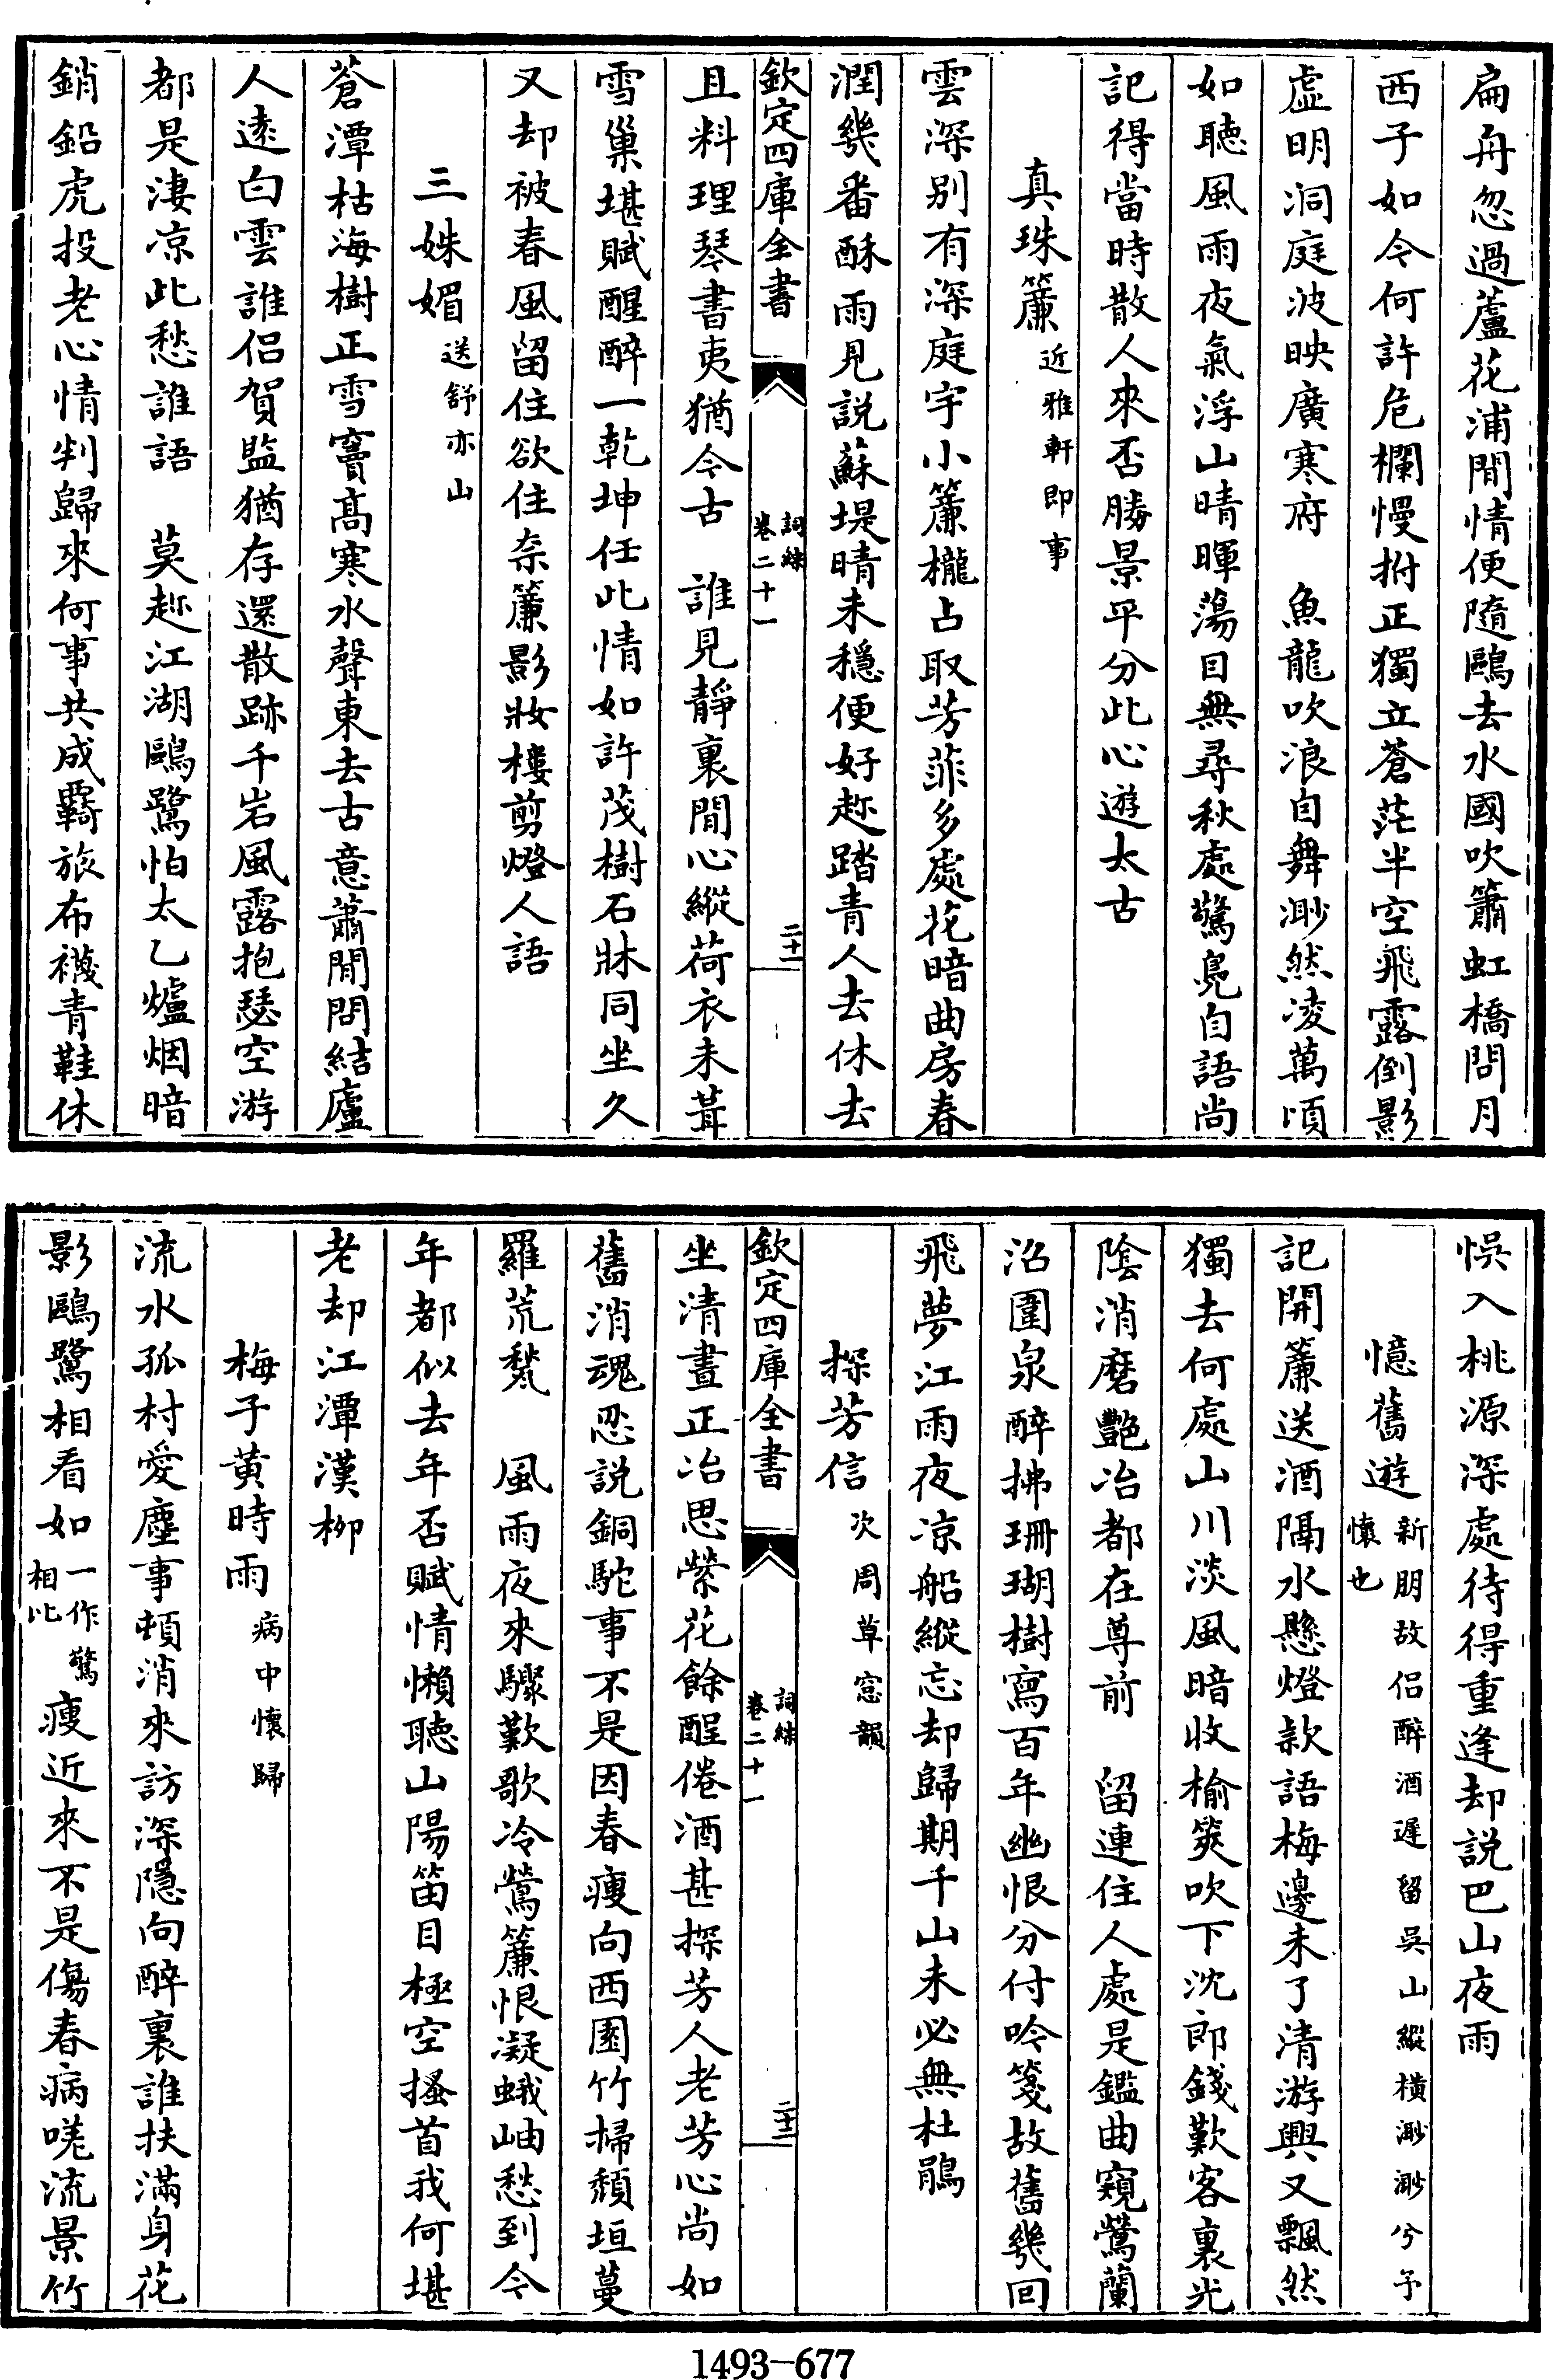 扁舟忽過蘆花浦閒情便隨鷗去水國吹簫虹橋問月
西子如今何許危欄慢拊正獨立蒼茫半空飛露倒影
虛明洞庭波映廣寒府　魚龍吹浪自舞渺然凌萬頃
如聽風雨夜氣浮山晴暉蕩目無尋秋處驚鳧自語尚
記得當時散人來否勝景平分此心遊太古
真珠簾近雅軒即事
雲深别有深庭宇小簾櫳占取芳菲多處花暗曲房春
潤幾番酥雨見説蘇堤晴未穩便好趂踏青人去休去
欽定四庫全書
詞綜
卷二十一
二十一
且料理琴書夷猶今古　誰見靜裏閒心縱荷衣未葺
雪巢堪賦醒醉一乾坤任此情如許茂樹石牀同坐久
又却被春風留住欲住奈簾影妝樓剪燈人語
三姝媚送舒亦山
蒼潭枯海樹正雪竇高寒水聲東去古意蕭閒問結廬
人逺白雲誰侣賀監猶存還散跡千岩風露抱瑟空游
都是淒凉此愁誰語　莫趂江湖鷗鷺怕太乙爐烟暗
銷鉛虎投老心情判歸來何事共成覊旅布襪青鞋休
悞入桃源深處待得重逢却説巴山夜雨
憶舊遊新朋故侣醉酒遲留吳山縱横渺渺兮予
懷也
記開簾送酒隔水懸燈款語梅邊未了清游興又飄然
獨去何處山川淡風暗收榆莢吹下沈郎錢歎客裏光
陰消磨艷冶都在尊前　留連住人處是鑑曲窺鶯蘭
沼圍泉醉拂珊瑚樹寫百年幽恨分付吟箋故舊幾回
飛夢江雨夜凉船縱忘却歸期千山未必無杜鵑
探芳信次周草窗韻
欽定四庫全書
詞綜
卷二十一
二十二
坐清晝正冶思縈花餘酲倦酒甚探芳人老芳心尚如
舊消魂忍説銅駝事不是因春瘦向西園竹掃頹垣蔓
羅荒甃　風雨夜來驟歎歌冷鶯簾恨凝蛾岫愁到今
年都似去年否賦情懶聽山陽笛目極空搔首我何堪
老却江潭漢栁
梅子黄時雨病中懷歸
流水孤村愛塵事頓消來訪深隱向醉裏誰扶滿身花
影鷗鷺相看如一作驚
相比瘦近來不是傷春病嗟流景竹
1493—677